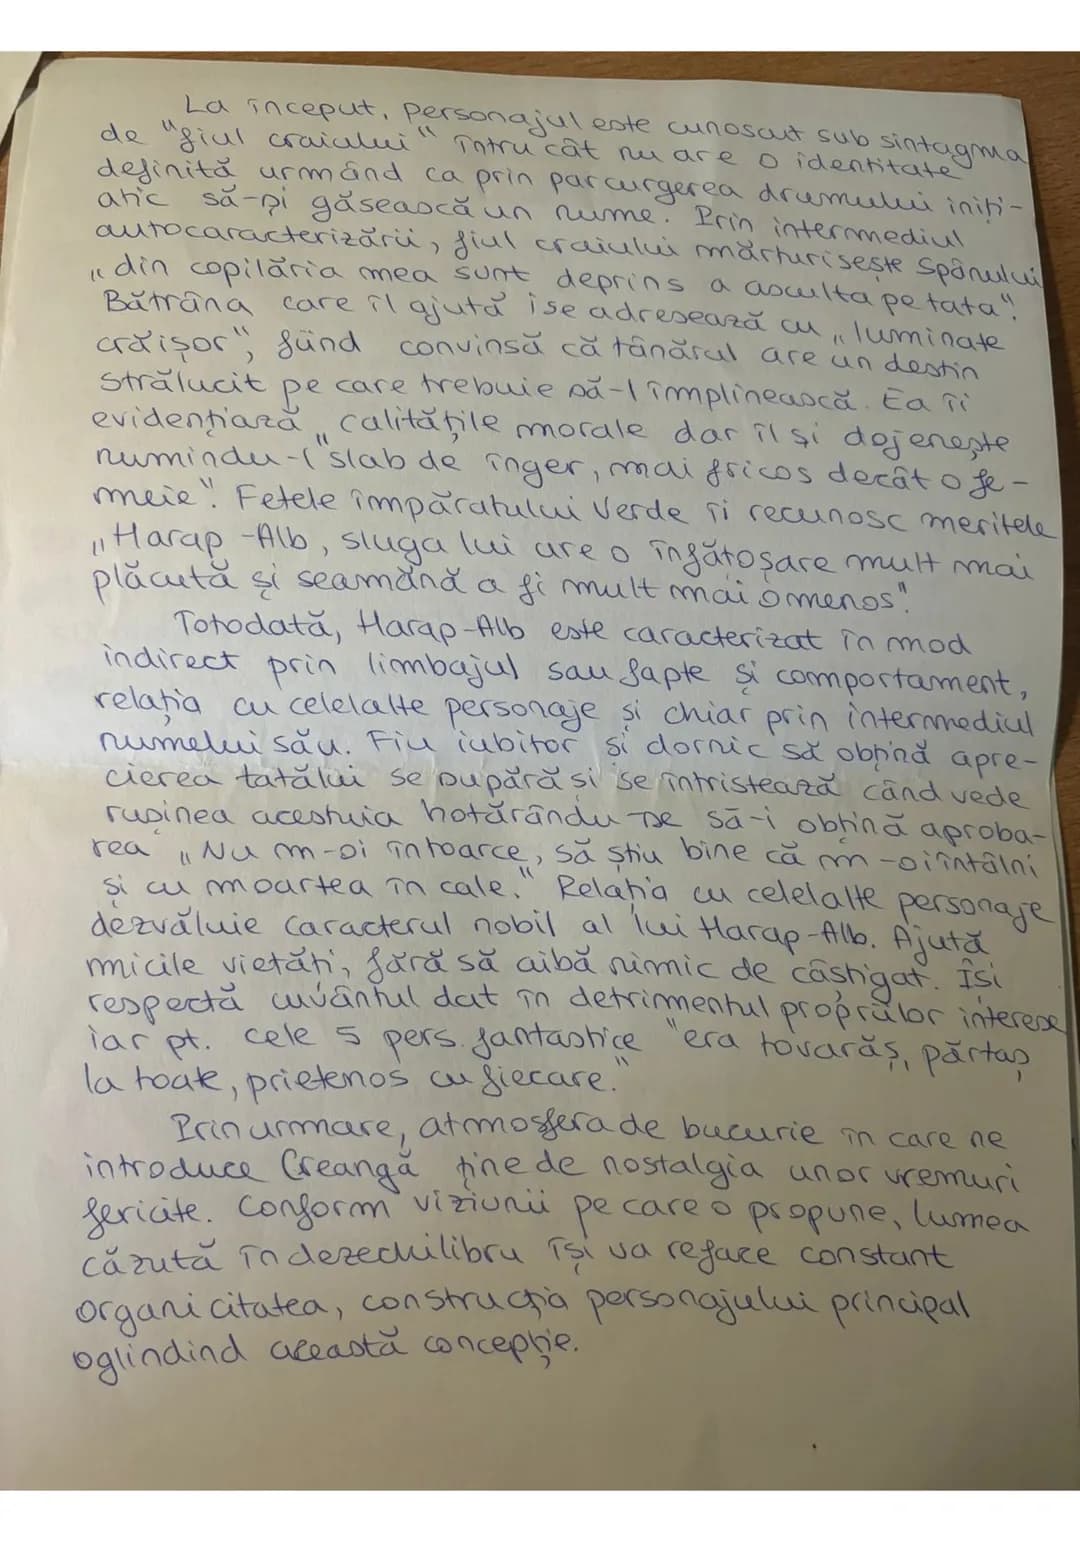 La început, personajul este cunoscut sub sintagma
de "fiul craiului" întru cât nu are o identitate
definită urmând ca prin parcurgerea drumului iniți-
atic să-și găsească un nume. Prin intermediul
autocaracterizării, fiul craiului mărturisește Spânului
„din copilăria mea sunt deprins a asculta pe tata".
Bătrâna care îl ajută i se adresează cu „luminate
crăișor", fiind convinsă că tânărul are un destin
strălucit pe care trebuie să-l împlinească. Ea îi
evidențiază calitățile morale dar îl și dojenește
numindu-l "slab de înger, mai fricos decât o fe-
meie". Fetele împăratului Verde îi recunosc meritele
„Harap-Alb, sluga lui are o înfătoșare mult mai
plăcută și seamănă a fi mult mai omenos".
Totodată, Harap-Alb este caracterizat în mod
indirect prin limbajul sau fapte și comportament,
relația cu celelalte personaje și chiar prin intermediul
numelui său. Fiu iubitor și dornic să obțină apre-
cierea tatălui se supără și se întristează când vede
rușinea acestuia hotărându-se să-i obțină aproba-
rea „Nu m-oi întoarce, să știu bine că m-oi întâlni
și cu moartea în cale." Relația cu celelalte personaje
dezvăluie caracterul nobil al lui Harap-Alb. Ajută
micile vietăți, fără să aibă nimic de câștigat. Își
respectă cuvântul dat în detrimentul propriilor interese
iar pt. cele 5 pers. fantastice "era tovarăș, părtaș
la toate, prietenos cu fiecare."
Prin urmare, atmosfera de bucurie în care ne
introduce Creangă ține de nostalgia unor vremuri
fericite. Conform viziunii pe care o propune, lumea
căzută în dezechilibru își va reface constant
organicitatea, construcția personajului principal
oglindind această concepție.